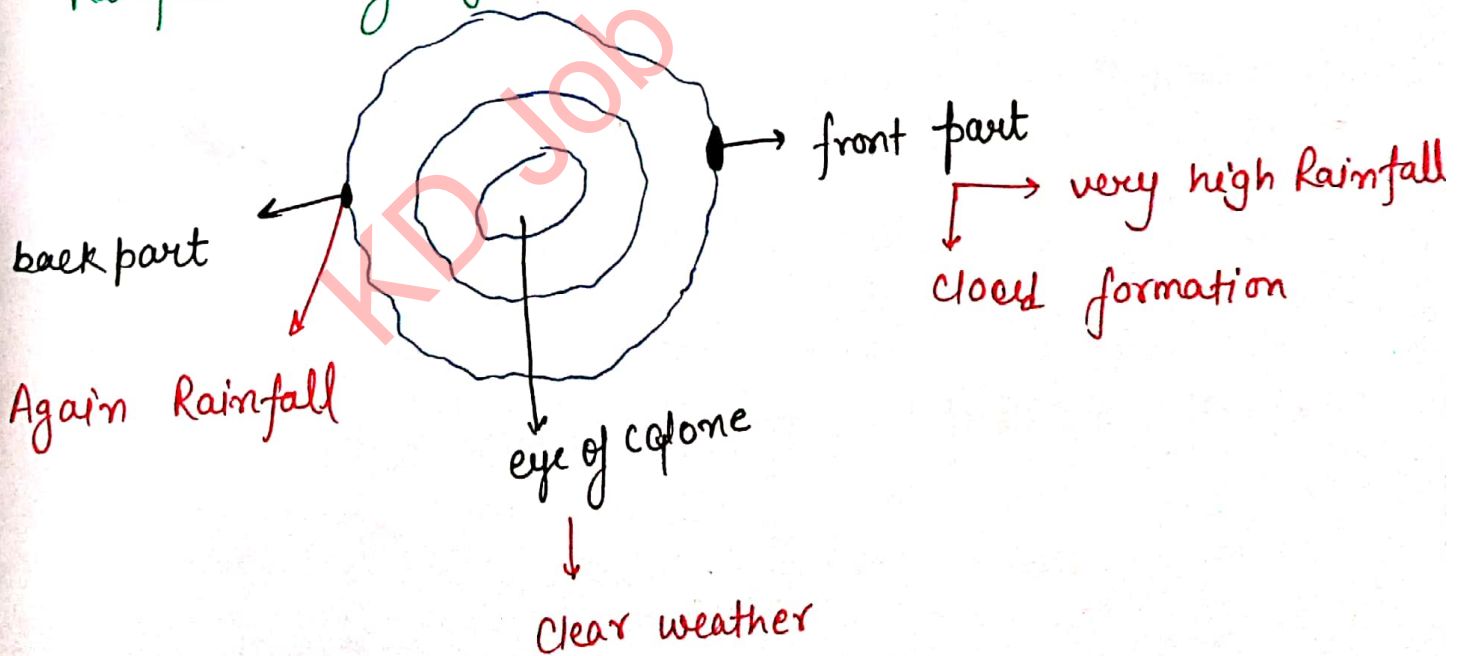 front part
very high Rainfall
cloud formation
back part
Again Rainfall
eye of
clear weather
KD Job